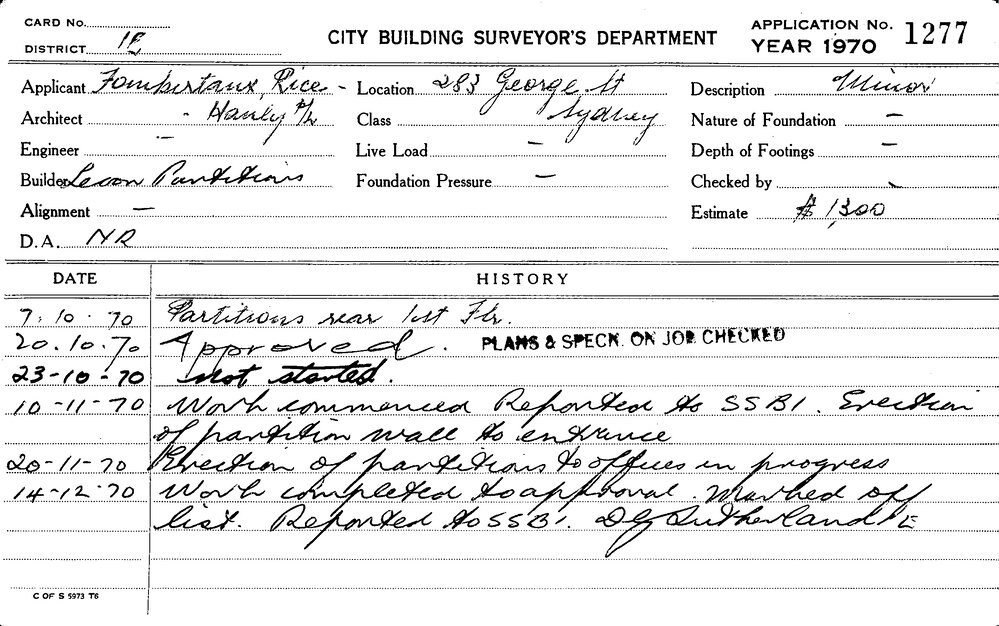 CARD No.
DISTRICT 1E
CITY BUILDING SURVEYOR'S DEPARTMENT
APPLICATION No. 1277
YEAR 1970
Applicant Fombertaux, Rice -
Architect - Hanly P/L
Engineer —
Builder Levon Partitions
Alignment —
D.A. NR
Location 283 George St
Class Sydney
Live Load —
Foundation Pressure —
Description Minor
Nature of Foundation —
Depth of Footings —
Checked by -
Estimate $1,300
DATE HISTORY
7.10.70 Partitions rear 1st Flr.
20.10.70 Approved. PLANS & SPECN. ON JOB CHECKED
23-10-70 Not started.
10-11-70 Work commenced Reported to SSBI. Erection
of partition wall to entrance
20-11-70 Erection of partitions to offices in progress
14-12-70 Work completed to approval. Marked off
list. Reported to SSBI. DG Sutherland 1E
C OF S 5973 T6